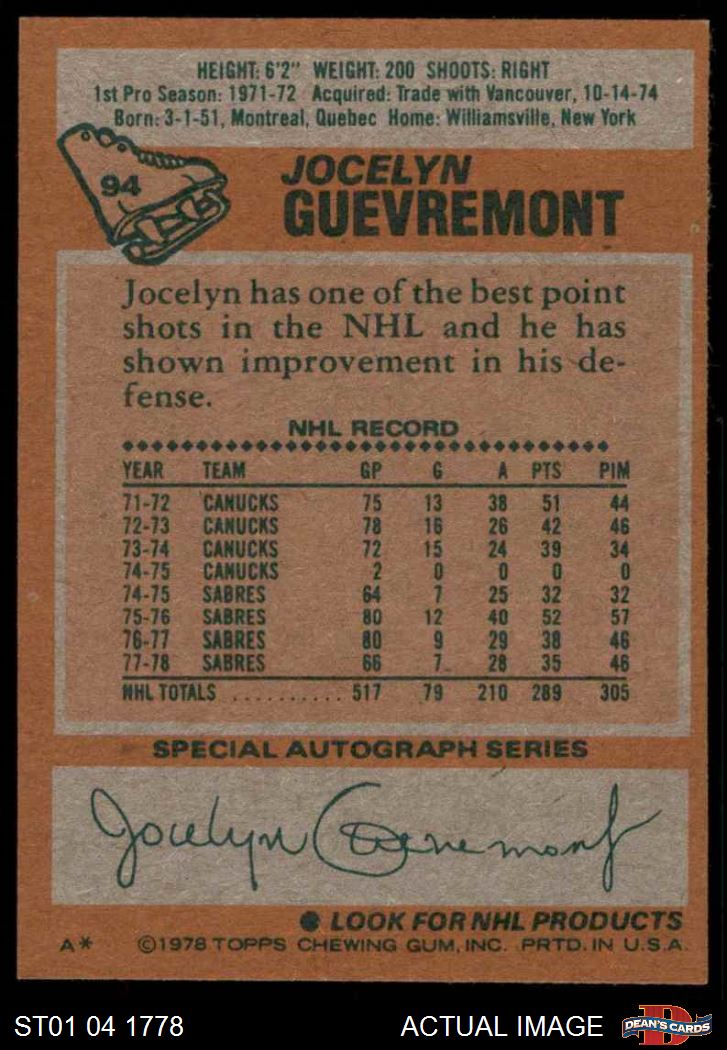 HEIGHT: 6'2" WEIGHT: 200 SHOOTS: RIGHT
1st Pro Season: 1971-72 Acquired: Trade with Vancouver, 10-14-74
Born: 3-1-51, Montreal, Quebec Home: Williamsville, New York
94
JOCELYN
GUEVREMONT
Jocelyn has one of the best point
shots in the NHL and he has
shown improvement in his de-
fense.
NHL RECORD
YEAR TEAM GP G A PTS PIM
71-72 CANUCKS 75 13 38 51 44
72-73 CANUCKS 78 16 26 42 46
73-74 CANUCKS 72 15 24 39 34
74-75 CANUCKS 2 0 0 0 0
74-75 SABRES 64 7 25 32 32
75-76 SABRES 80 12 40 52 57
76-77 SABRES 80 9 29 38 46
77-78 SABRES 66 7 28 35 46
NHL TOTALS ........... 517 79 210 289 305
SPECIAL AUTOGRAPH SERIES
Jocelyn Guevremont
LOOK FOR NHL PRODUCTS
A* ©1978 TOPPS CHEWING GUM, INC. PRTD. IN U.S.A.
ST01 04 1778 ACTUAL IMAGE D DEAN'S CARDS